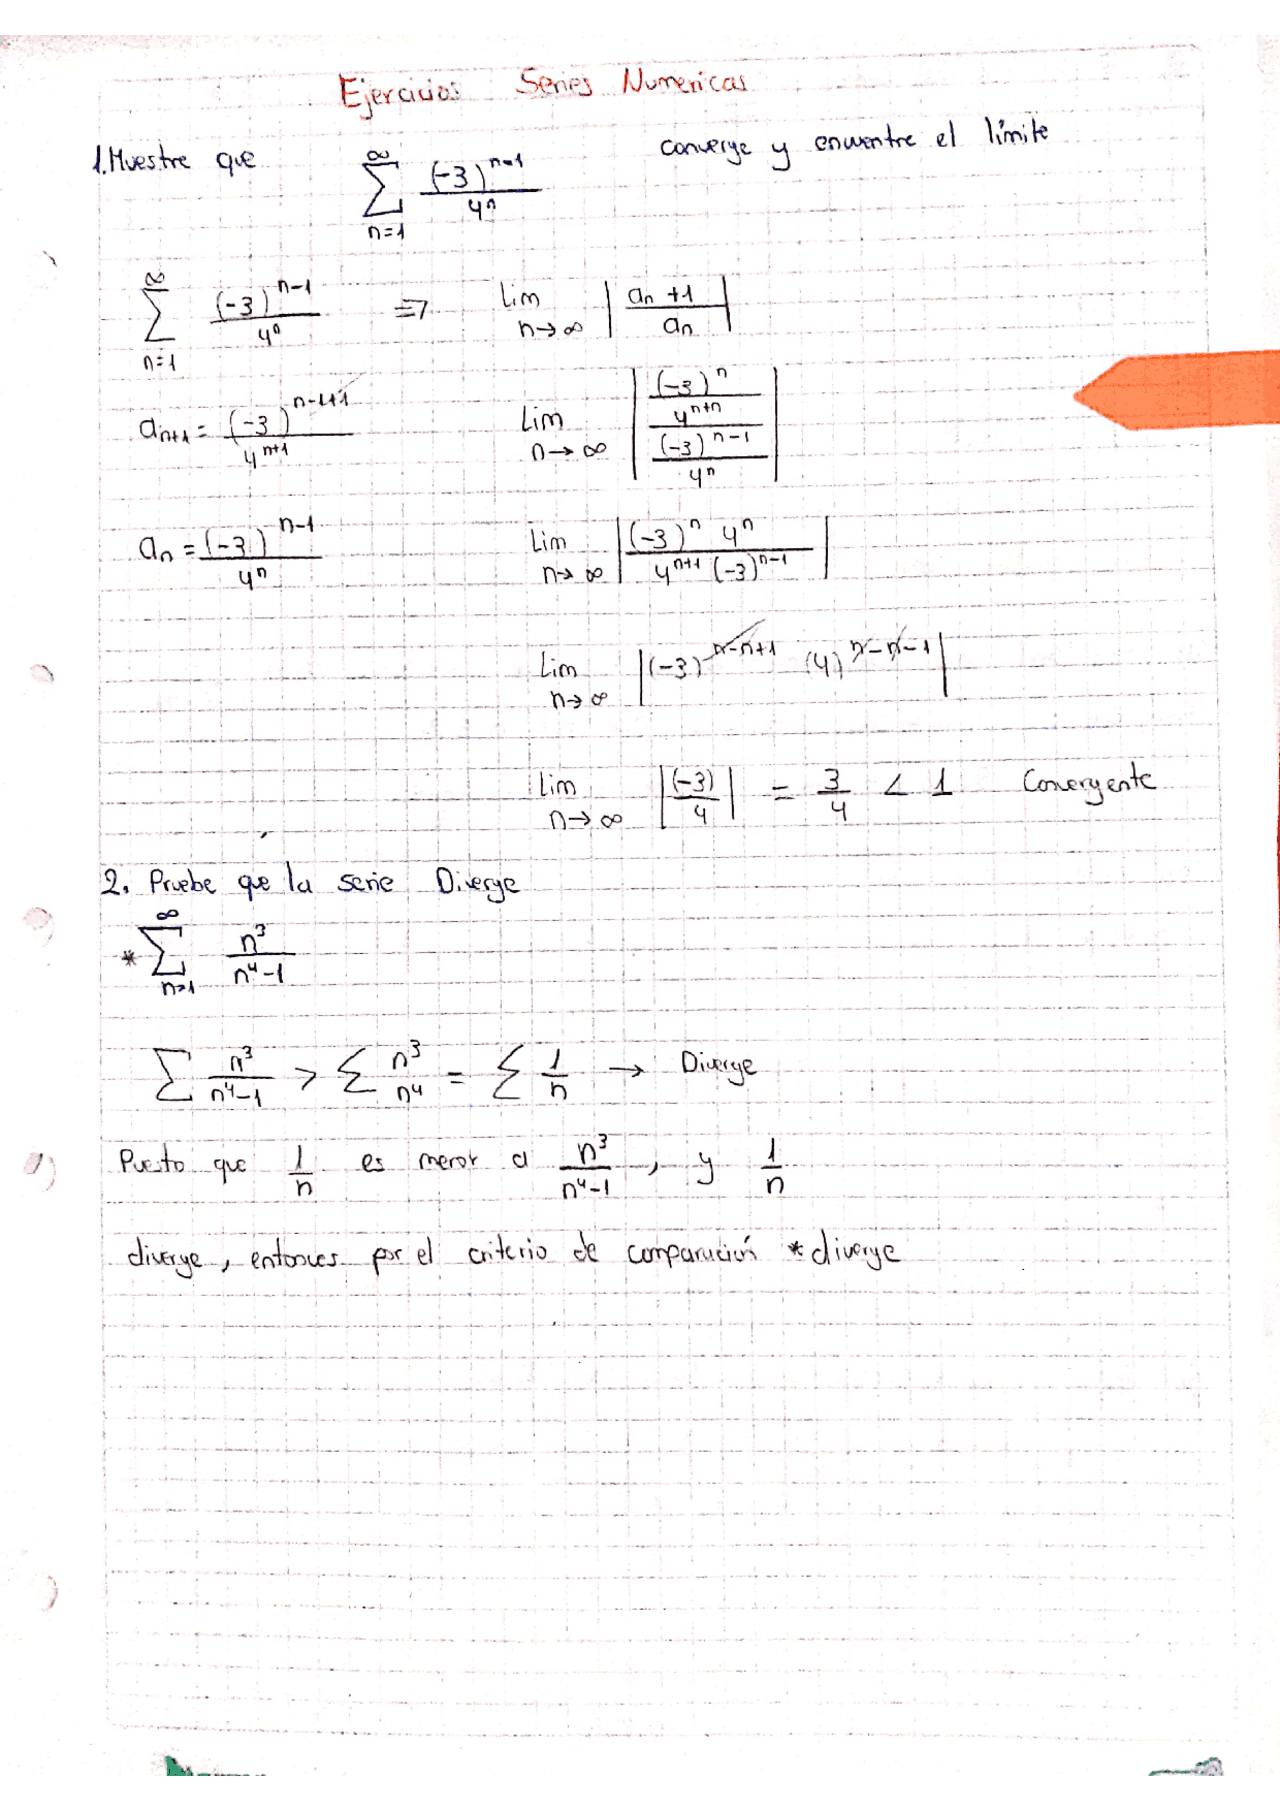 Ejercicios Series Numericas
1. Muestre que ∞ ∑ n=1 (-3)^{n-1} / 4^n converge y encuentre el límite
∞ ∑ n=1 (-3)^{n-1} / 4^n => Lim n→∞ | a_n +1 / a_n |
a_{n+1} = (-3)^{n-1+1} / 4^{n+1} Lim n→∞ | (-3)^n / 4^{n+n} / (-3)^{n-1} / 4^n |
a_n = (-3)^{n-1} / 4^n Lim n→∞ | (-3)^n 4^n / 4^{n+1} (-3)^{n-1} |
Lim n→∞ | (-3)^{n-n+1} (4)^{n-n-1} |
Lim n→∞ | (-3) / 4 | = 3/4 < 1 Convergente
2. Pruebe que la serie Diverge
* ∞ ∑ n=1 n^3 / n^4-1
∑ n^3 / n^4-1 > ∑ n^3 / n^4 = ∑ 1/n → Diverge
Puesto que 1/n es menor a n^3 / n^4-1 , y 1/n
diverge, entonces por el criterio de comparación * diverge